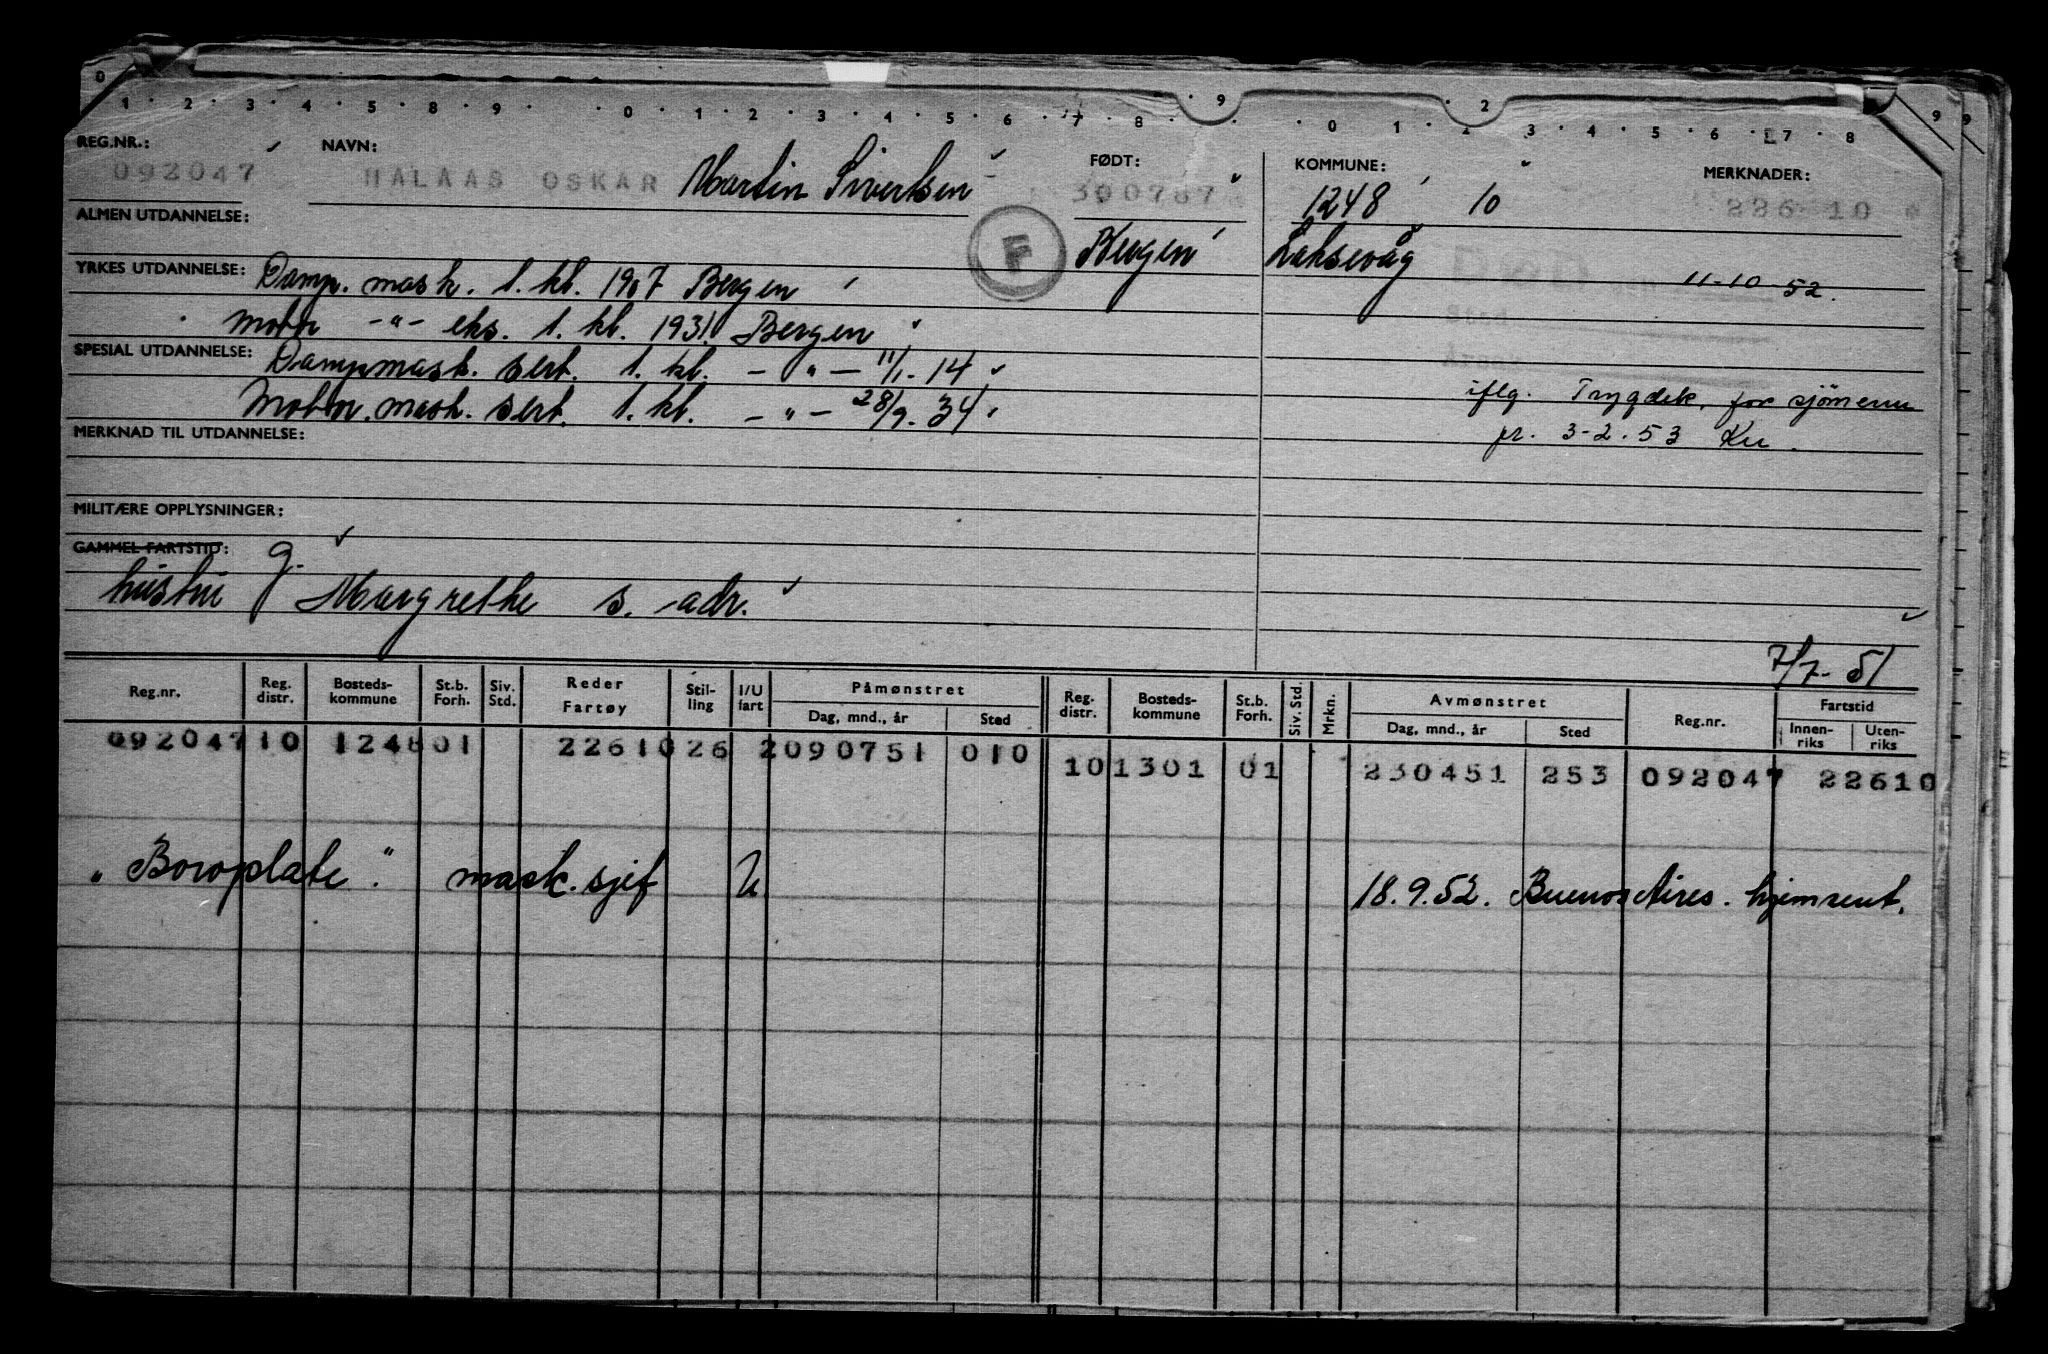 0 1 2 3 4 5 8 9 0 1 2 3 4 5 6 7 8 9 0 1 2 3 4 5 6 7 8 9 9
REG.NR.: NAVN: FØDT: KOMMUNE: MERKNADER:
092047 HALAAS OSKAR Martin Sivertsen 300787 1248 10 226 10
ALMEN UTDANNELSE: F Bergen Laksevåg
YRKES UTDANNELSE: Damp. mask. 1. kl. 1907 Bergen DØD 11-10-52.
Motor -"- eks. 1. kl. 1931 Bergen
SPESIAL UTDANNELSE: Dampmask. sert. 1. kl. - " - 11/1-14
Motor. mask. sert. 1. kl. - " - 28/9. 34 iflg. Trygdek. for sjömenn
MERKNAD TIL UTDANNELSE: pr. 3-2.53
MILITÆRE OPPLYSNINGER:
GAMMEL FARTSTID: g.
hustru Margrethe s. adr.
7/7-51
Reg.nr. Reg. distr. Bosteds-kommune St.b. Forh. Siv. Std. Reder Fartøy Stil-ling I/U fart Påmønstret Dag, mnd., år Sted Reg. distr. Bosteds-kommune St.b. Forh. Siv. Std. Mrkn. Avmønstret Dag, mnd., år Sted Reg.nr. Fartstid Innen-riks Uten-riks
092047 10 1248 01 22610 26 2 090751 010 10 1301 01 230451 253 092047 22610
"Boroplate". mask. sjef U 18.9.52. Buenos Aires. hjemsent.